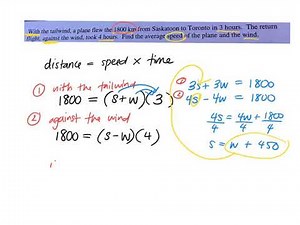 With the tailwind, a plane flew the 1800 km from Saskatoon to Toronto in 3 hours. The return
flight, against the wind, took 4 hours. Find the average speed of the plane and the wind.
distance = speed × time
① with the tailwind
1800 = (s+w)(3)
② against the wind
1800 = (s-w)(4)
① 3s + 3w = 1800
② 4s - 4w = 1800
4s/4 = 4w/4 + 1800/4
s = w + 450